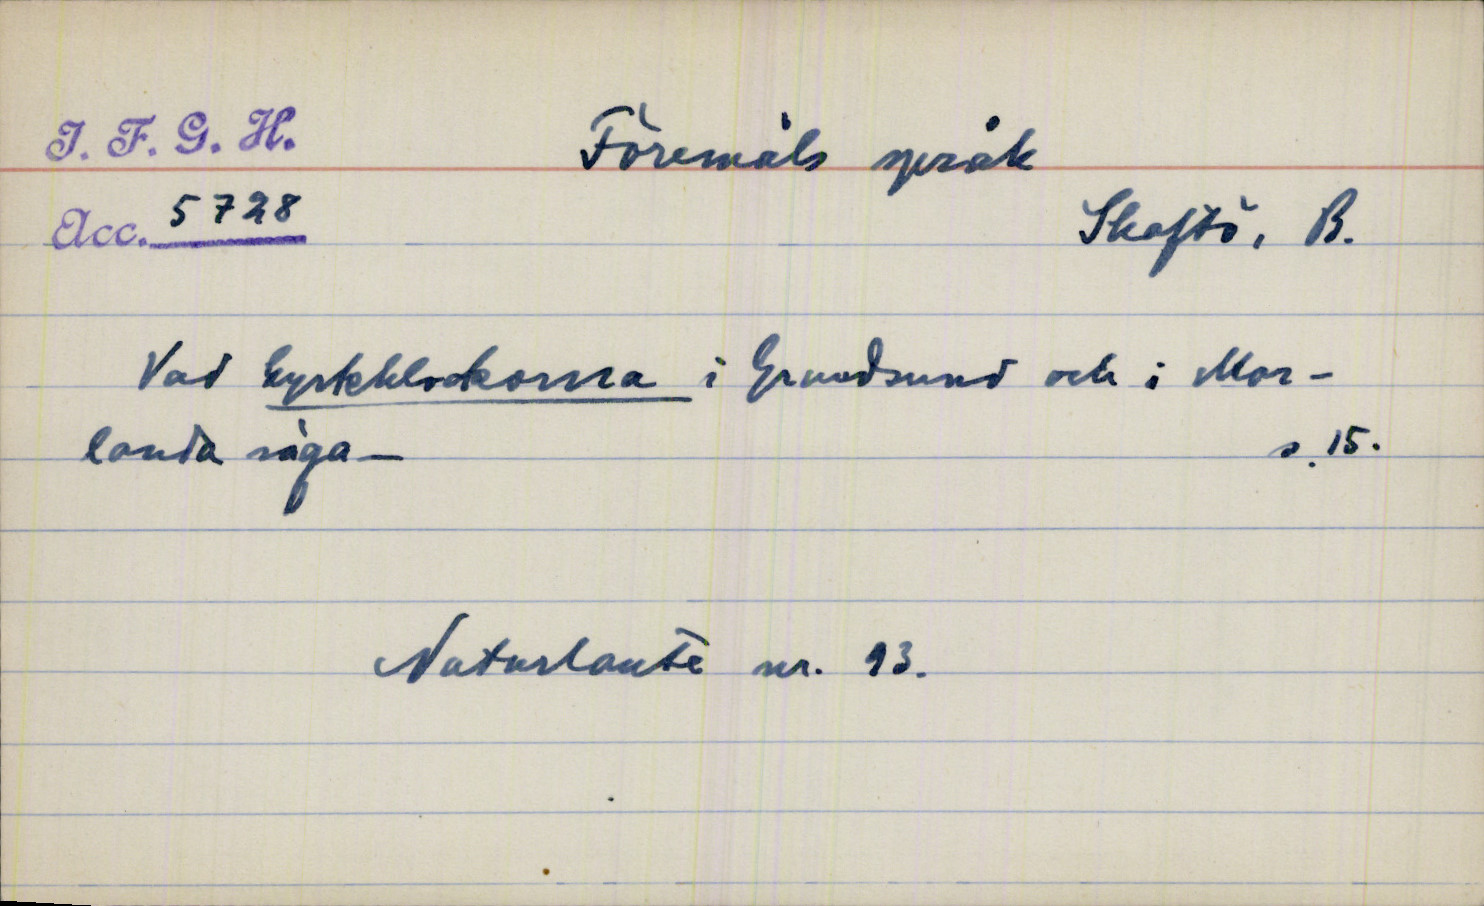 I. F. G. H.
Föremåls språk
Acc. 5728
Skaftö, B.
Vad kyrkklockorna i Grundsund och i Mor-
landa säga –
s. 15.
Naturlaute nr. 93.